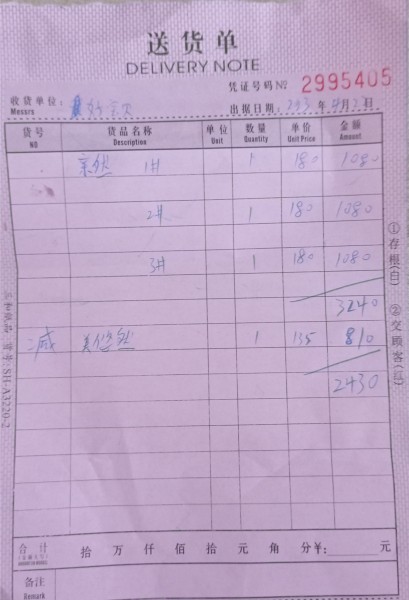 送货单
DELIVERY NOTE
凭证号码№ 2995405
收货单位：
Messrs
出据日期： 年 4月2日
货号 货品名称 单位 数量 单价 金额
NO Description Unit Quantity Unit Price Amount
亲然 1# 1 180 1080
2# 1 180 1080
3# 1 180 1080
3240
减 美悠然 1 135 810
2430
①存根(白) ②交顾客(红)
货号:SH-A3220-2
合计 拾 万 仟 佰 拾 元 角 分¥: 元
备注
Remark